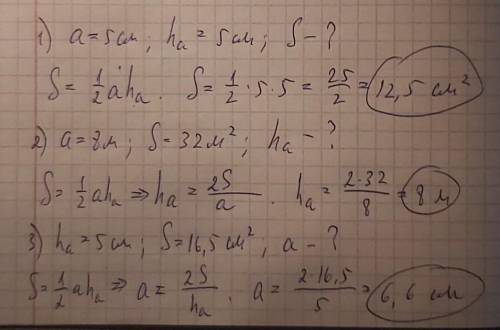 1) a = 5 см; hₐ = 5 см; S - ?
S = 1/2 ahₐ. S = 1/2 · 5 · 5 = 25/2 = 12,5 см²
2) a = 8 м; S = 32 м²; hₐ - ?
S = 1/2 ahₐ ⇒ hₐ = 2S/a. hₐ = 2·32/8 = 8 м
3) hₐ = 5 см; S = 16,5 см², a - ?
S = 1/2 ahₐ ⇒ a = 2S/hₐ. a = 2·16,5/5 = 6,6 см